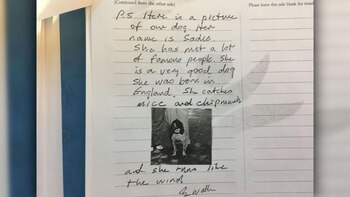 (Continued from the other side)
Please leave this side blank for
P.S Here is a picture
of our dog Her
name is Sadie.
She has met a lot
of famous people She
is a very good dog
She was born in
England. She catches
mice and chipmunks
and she runs like
the wind